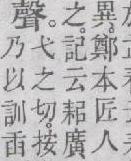 異鄭本匠人
之。記云耜廣
聲。
弋之切。按
乃以訓臿